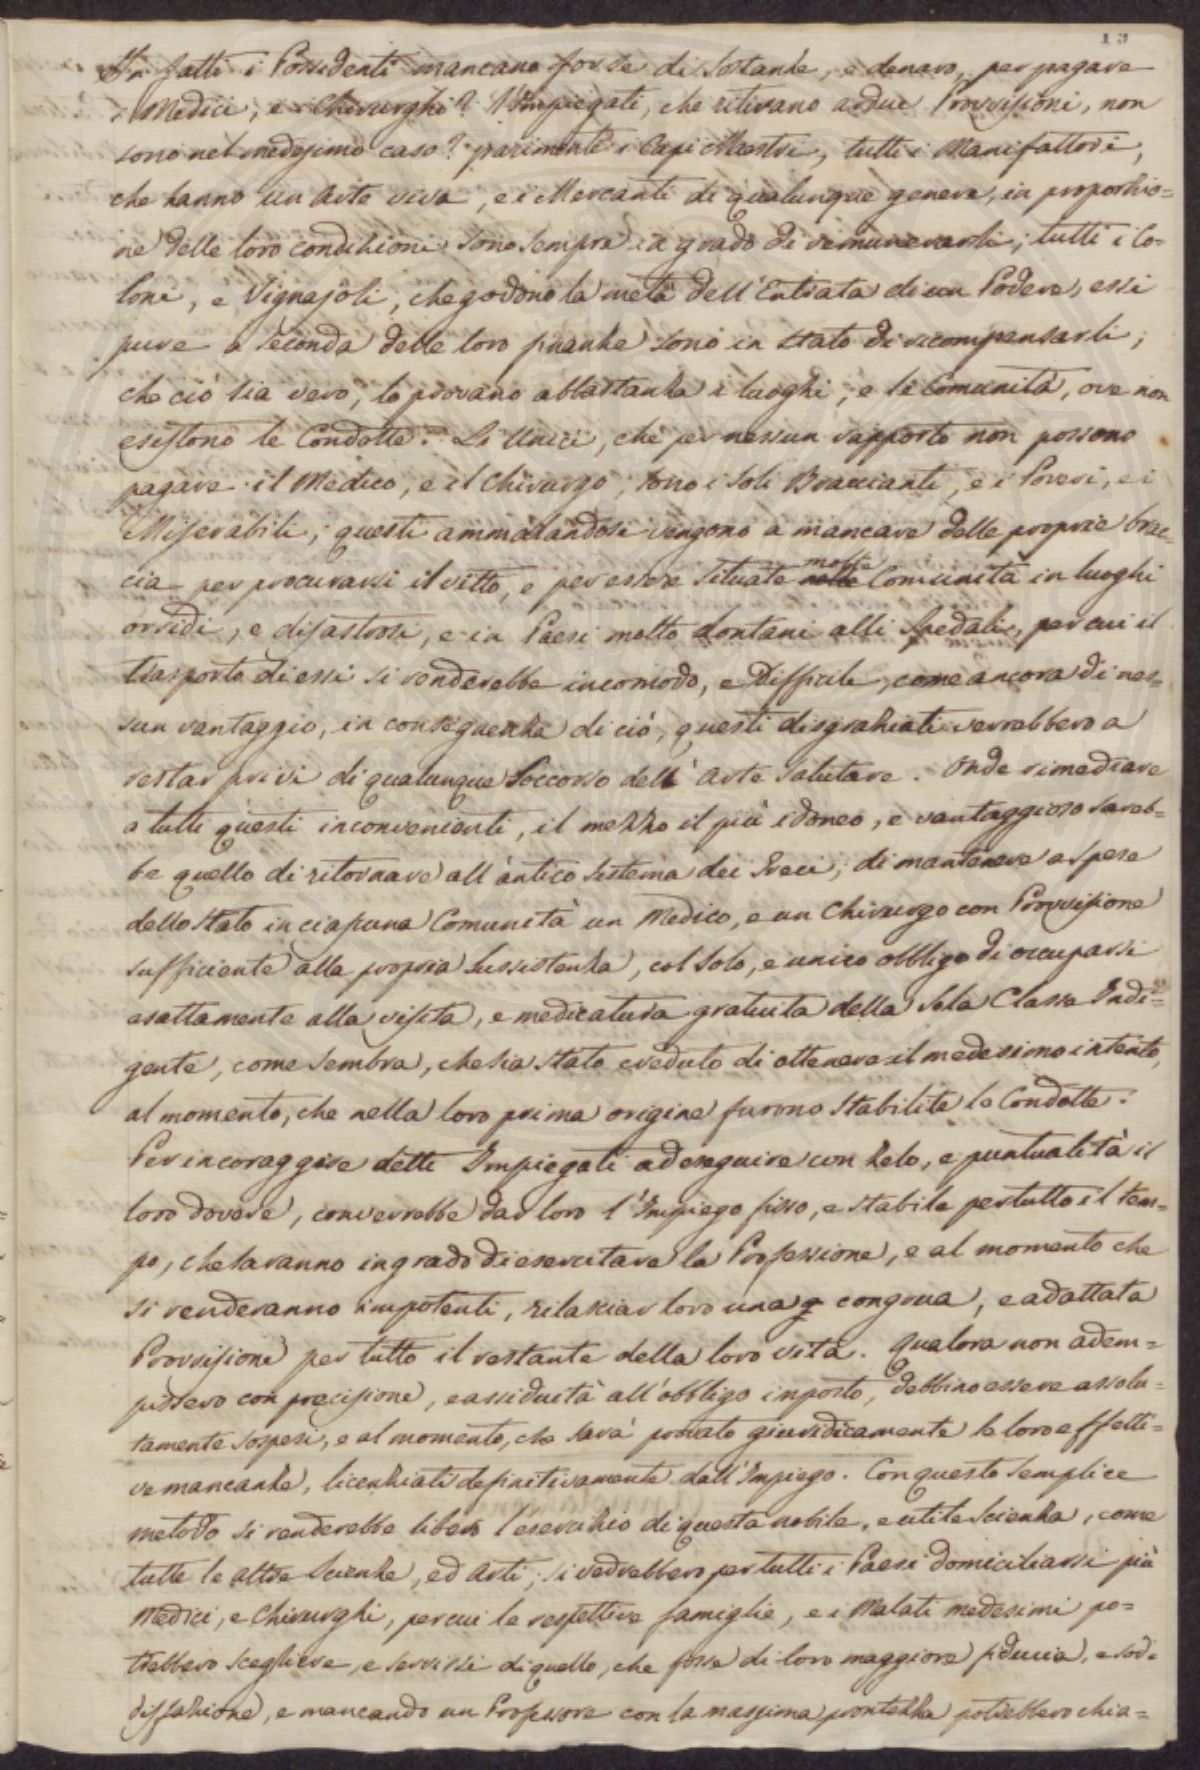 13
In fatti i Possidenti mancano forse di Sostanze, e denaro, per pagare
i Medici, e i Chirurghi? Gl'Impiegati, che ritirano ardue Provvisioni, non
sono nel medesimo caso? parimente i Capi Maestri, tutti i Manifattori,
che hanno un Arte viva, e i Mercanti di qualunque genere, in proporzio=
ne delle loro condizioni sono sempre in grado di remunerarli; tutti i Co=
loni, e Vignajoli, che godono la metà dell'Entrata di un Podere, essi
pure a seconda delle loro finanze sono in stato di ricompensarli;
che ciò sia vero, lo provano abbastanza i luoghi, e le Comunità, ove non
esistono le Condotte. Li Unici, che per nessun rapporto non possono
pagare il Medico, e il Chirurgo, sono i soli Braccianti, e i Poveri, e i
Miserabili; questi ammalandosi vengono a mancare delle proprie brac=
cia per procurarsi il vitto, e per essere situate molte Comunità in luoghi
orridi, e disastrosi, e in Paesi molto lontani alli Spedali, per cui il
trasporto di essi si renderebbe incomodo, e difficile, come ancora di nes=
sun vantaggio, in conseguenza di ciò, questi disgraziati verrebbero a
restar privi di qualunque Soccorso dell'Arte Salutare. Onde rimediare
a tutti questi inconvenienti, il mezzo il più idoneo, e vantaggioso sareb=
be quello di ritornare all'antico Sistema dei Greci, di mantenere a spese
dello Stato in ciascuna Comunità un Medico, e un Chirurgo con Provvisione
sufficiente alla propria Sussistenza, col solo, e unico obbligo di occuparsi
esattamente alla visita, e medicatura gratuita della sola Classe Indi=
gente, come sembra, che sia stato creduto di ottenere il medesimo intento,
al momento, che nella loro prima origine furono stabilite le Condotte.
Per incoraggire detti Impiegati ad eseguire con zelo, e puntualità il
loro dovere, converrebbe dar loro l'Impiego fisso, e stabile per tutto il tem=
po, che saranno in grado di esercitare la Professione, e al momento che
si renderanno impotenti, rilasciar loro una congrua, e adattata
Provvisione per tutto il restante della loro vita. Qualora non adem=
pissero con precisione, e assiduità all'obbligo imposto, debbino essere assolu=
tamente sospesi, e al momento, che sarà provato giuridicamente le loro effetti=
ve mancanze, licenziati definitivamente dall'Impiego. Con questo semplice
metodo si renderebbe libero l'esercizio di questa nobile, e utile Scienza, come
tutte le altre Scienze, ed Arti; si vedrebbero per tutti i Paesi domiciliarsi più
Medici, e Chirurghi, per cui le respettive famiglie, e i Malati medesimi po=
trebbero scegliere, e servirsi di quello, che fosse di loro maggiore fiducia, e sod=
disfazione, e mancando un Professore con la massima prontezza potrebbero chia=